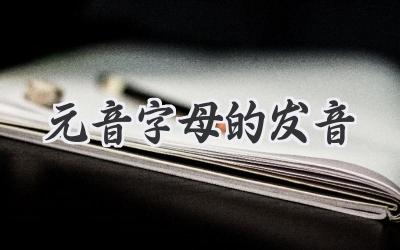 元音字母的发音